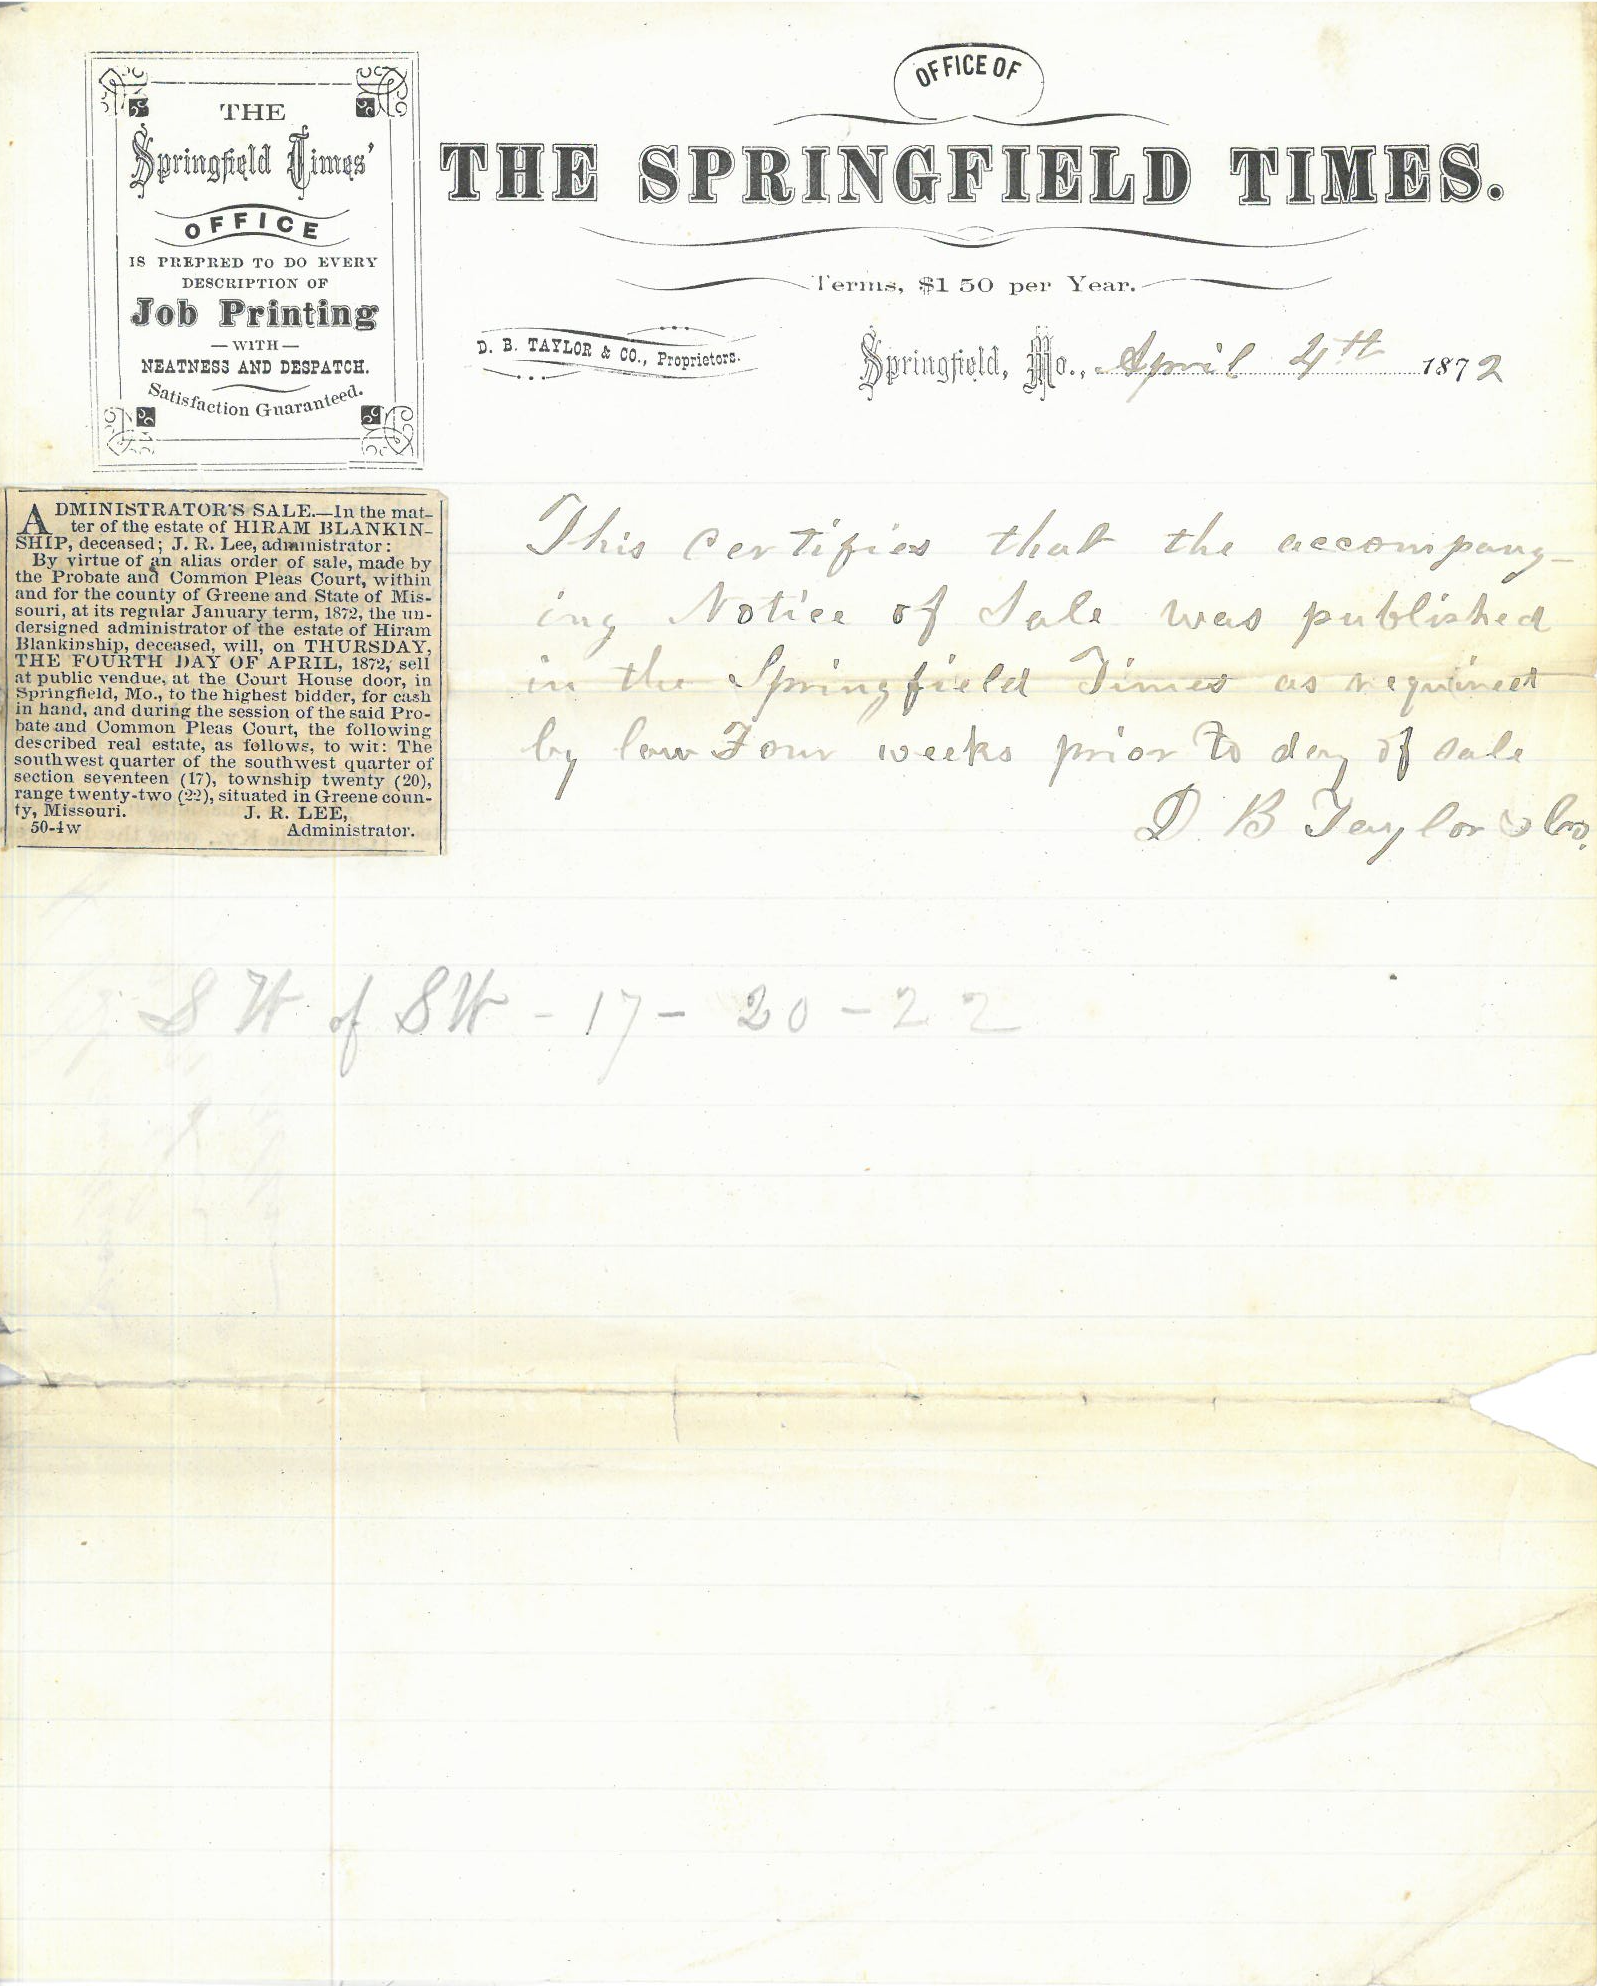 THE
Springfield Times'
OFFICE
IS PREPRED TO DO EVERY
DESCRIPTION OF
Job Printing
—WITH—
NEATNESS AND DESPATCH.
Satisfaction Guaranteed.
OFFICE OF
THE SPRINGFIELD TIMES.
Terms, $1 50 per Year.
D. B. TAYLOR & CO., Proprietors.
Springfield, Mo., April 4th 1872
ADMINISTRATOR'S SALE.—In the mat-
ter of the estate of HIRAM BLANKIN-
SHIP, deceased; J. R. Lee, administrator:
By virtue of an alias order of sale, made by
the Probate and Common Pleas Court, within
and for the county of Greene and State of Mis-
souri, at its regular January term, 1872, the un-
dersigned administrator of the estate of Hiram
Blankinship, deceased, will, on THURSDAY,
THE FOURTH DAY OF APRIL, 1872, sell
at public vendue, at the Court House door, in
Springfield, Mo., to the highest bidder, for cash
in hand, and during the session of the said Pro-
bate and Common Pleas Court, the following
described real estate, as follows, to wit: The
southwest quarter of the southwest quarter of
section seventeen (17), township twenty (20),
range twenty-two (22), situated in Greene coun-
ty, Missouri. J. R. LEE,
50-4w Administrator.
This certifies that the accompany-
ing Notice of Sale was published
in the Springfield Times as required
by law Four weeks prior to day of sale
D B Taylor & Co.
SW of SW - 17 - 20 - 22